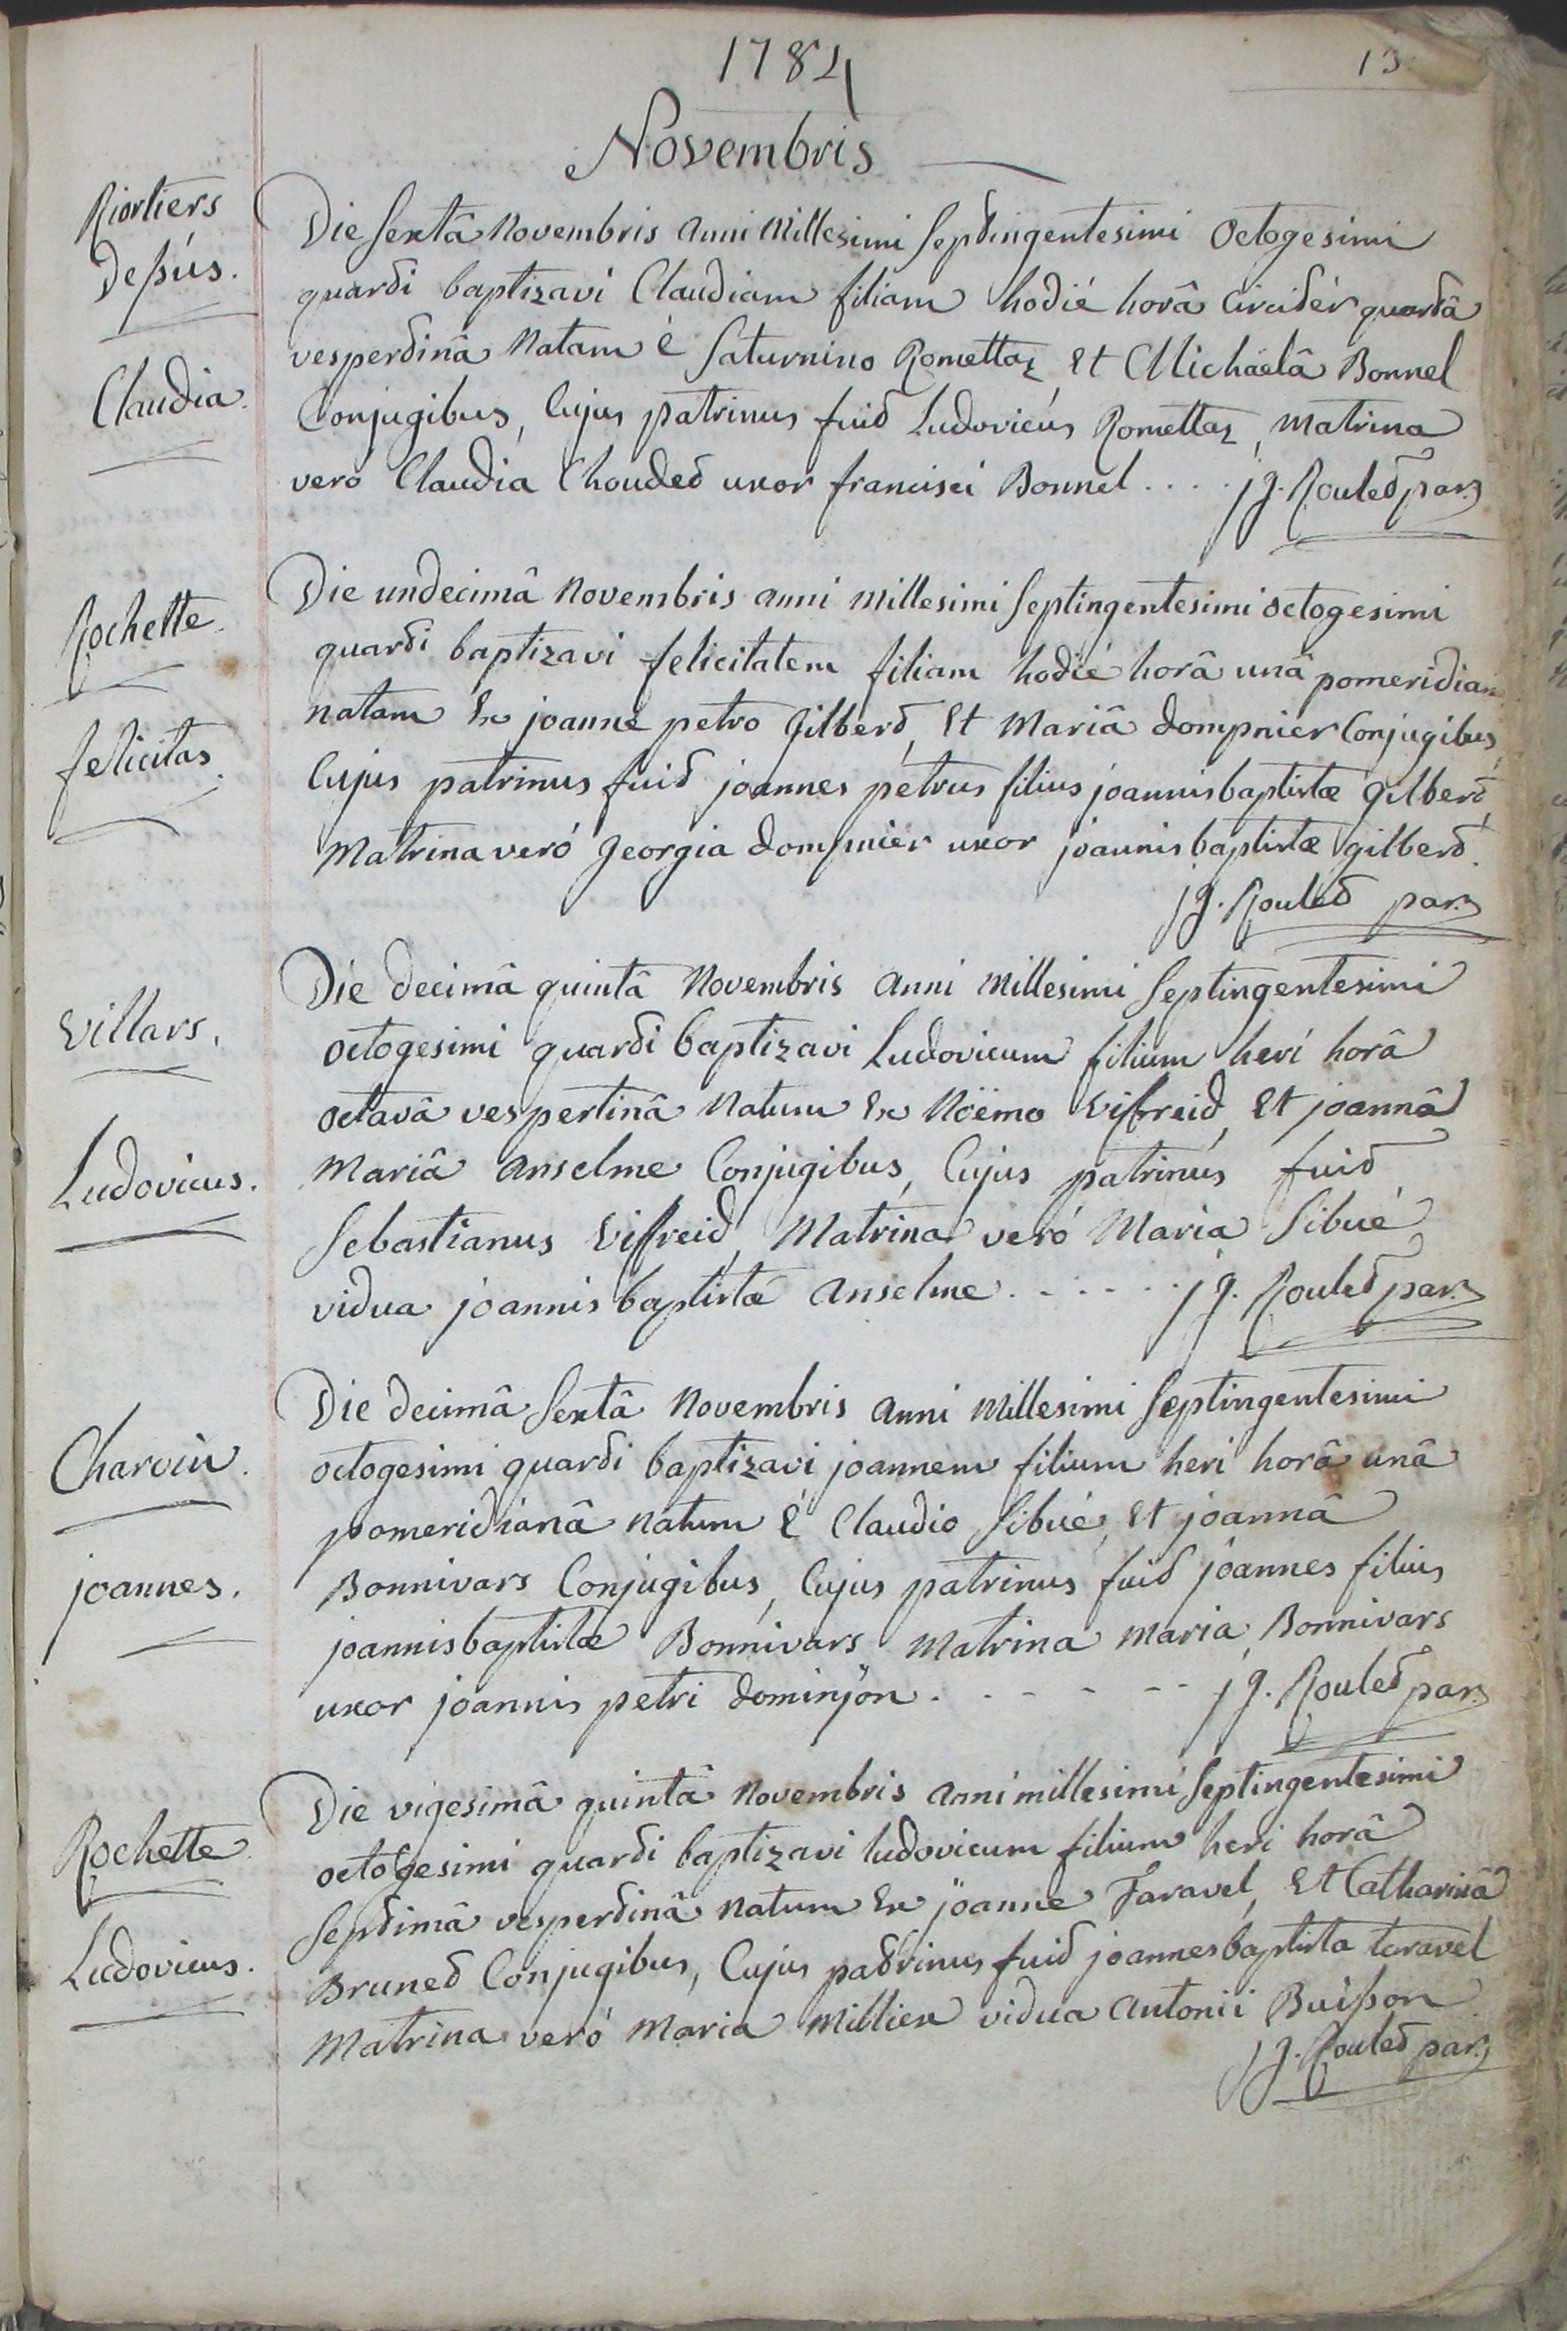 1784
13
Novembris
Riortiers
Dessús.
Claudia.
Die Sextâ Novembris anni Millesimi Septingentesimi Octogesimi
quarti baptizavi Claudiam filiam hodié horâ circitér quartâ
vespertinâ Natam é Saturnino Romettaz, Et Michaelâ Bonnel
Conjugibus, Cujus patrinus fuit Ludovicús Romettaz, Matrina
veró Claudia Choudet uxor francisci Bonnel.... j g. Roulet par.
Rochette.
felicitas.
Die undecimâ Novembris anni Millesimi Septingentesimi octogesimi
quarti baptizavi felicitatem filiam hodié horâ unâ pomeridian
natam Ex joanne petro Gilbert, Et Mariâ Dompnier Conjugibus,
Cujus patrinus fuit joannes petrus filius joannisbaptistæ Gilbert,
Matrina veró Georgia Dompnier uxor joannisbaptistæ gilbert.
j g. Roulet par.
Villars.
Ludovicus.
Die decimâ quintâ Novembris anni Millesimi Septingentesimi
octogesimi quarti baptizavi Ludovicum filium heri horâ
octavâ vespertinâ Natum Ex Noëmo Vifreid, Et joannâ
Mariâ Anselme Conjugibus, Cujus patrinús fuit
Sebastianus Vifreid, Matrina veró Maria Sibué
vidua joannis baptistæ Anselme...... j g. Roulet par.
Charvin.
joannes.
Die decimâ Sextâ Novembris anni Millesimi Septingentesimi
octogesimi quarti baptizavi joannem filium heri horâ unâ
pomeridianâ Natum É Claudio Sibué, Et joannâ
Bonnivars Conjugibus, Cujus patrinus fuit joannes filius
joannisbaptistæ Bonnivars Matrina Maria Bonnivars
uxor joannis petri Dominjon. - - - - - j g. Roulet par.
Rochette.
Ludovicus.
Die vigesimâ quintâ Novembris anni millesimi Septingentesimi
octogesimi quarti baptizavi ludovicum filium heri horâ
Septimâ vespertinâ Natum Ex joanne Taravel, Et Catharinâ
Brunet Conjugibus, Cujus patrinus fuit joannesbaptista taravel
Matrina veró Maria Milliex vidua Antonii Buisson
j g. Roulet par.